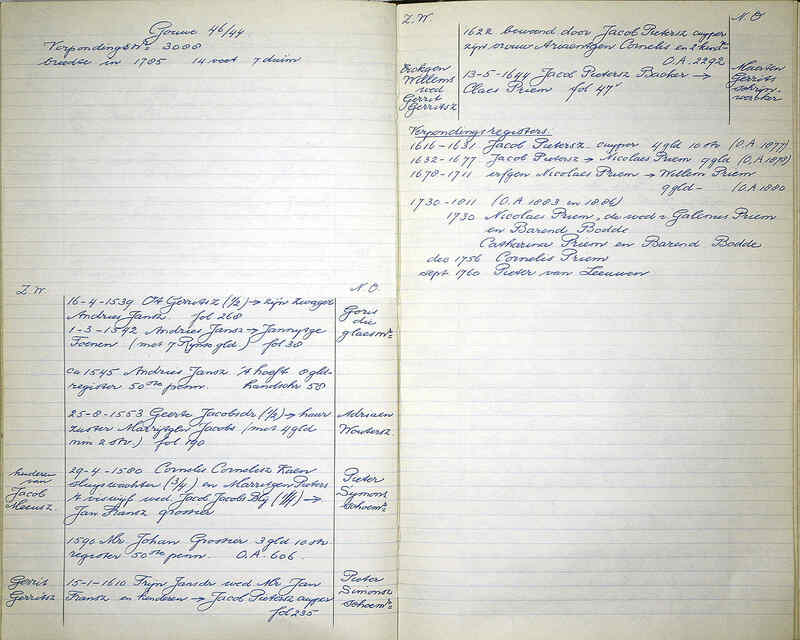 Gouwe 46/44
Verpondings No 3088
breedte in 1785 14 voet 7 duim
Z.W. N.O.
16-4-1539 Ott Gerritsz (1/2) → zijn zwager
Andries Jansz fol 268
1-3-1542 Andries Jansz → Jannytge
Toenen (met 7 Rynsgld) fol 38
Goris
die
glaesmr
ca 1545 Andries Jansz 't hooft 8 gld
register 50ste penn. handschr 58
25-8-1553 Geerte Jacobsdr (1/2) → haar
zuster Marrytgen Jacobs (met 4 gld
min 2 stv) fol 190
Adriaen
Woutersz
kinderen
van
Jacob
Meeusz
29-4-1580 Cornelis Cornelisz Kaen
sluyswachter (3/4) en Marritgen Pieters
wed Jacob Jacobs (1/4) →
Jan Fransz
Pieter
Symons
schoemr
1590 Mr Johan 3 gld 10 stv
register 50ste penn. O.A. 606
Gerrit
Gerritsz
15-1-1610 Tryn Jansdr wed Mr Jan
Fransz en kinderen → Jacob Pietersz cuyper
fol 235
Pieter
Simonsz
schoemr
Z.W. N.O
1622 bewoond door Jacob Pietersz cuyper
zijn vrouw Ariaentgen Cornelis en 2 kindn
O.A. 2292
Willems
wed
Gerrit
Gerritsz
13-5-1644 Jacob Pietersz Backer →
Claes Priem fol 47v
Maarten
Gerrits
schryn-
wercker
Verpondingsregisters.
1616-1631 Jacob Pietersz cuyper 4 gld 10 stv (O.A. 1877)
1632-1677 Jacob Pietersz → Nicolaes Priem 9 gld (O.A. 1878)
1678-1711 erfgen Nicolaes Priem → Willem Priem
9 gld- (O.A. 1880
1730-1811 (O.A. 1883 en 1886)
1730 Nicolaes Priem, de wed v Galenus Priem
en Barend Bodde
Catharina Priem en Barend Bodde
dec 1756 Cornelis Priem
sept 1760 Pieter van Leeuwen